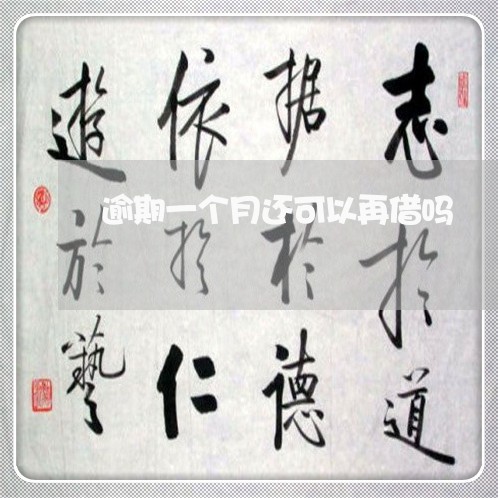 志於道
据於德
依於仁
遊於藝
逾期一个月还可以再借吗